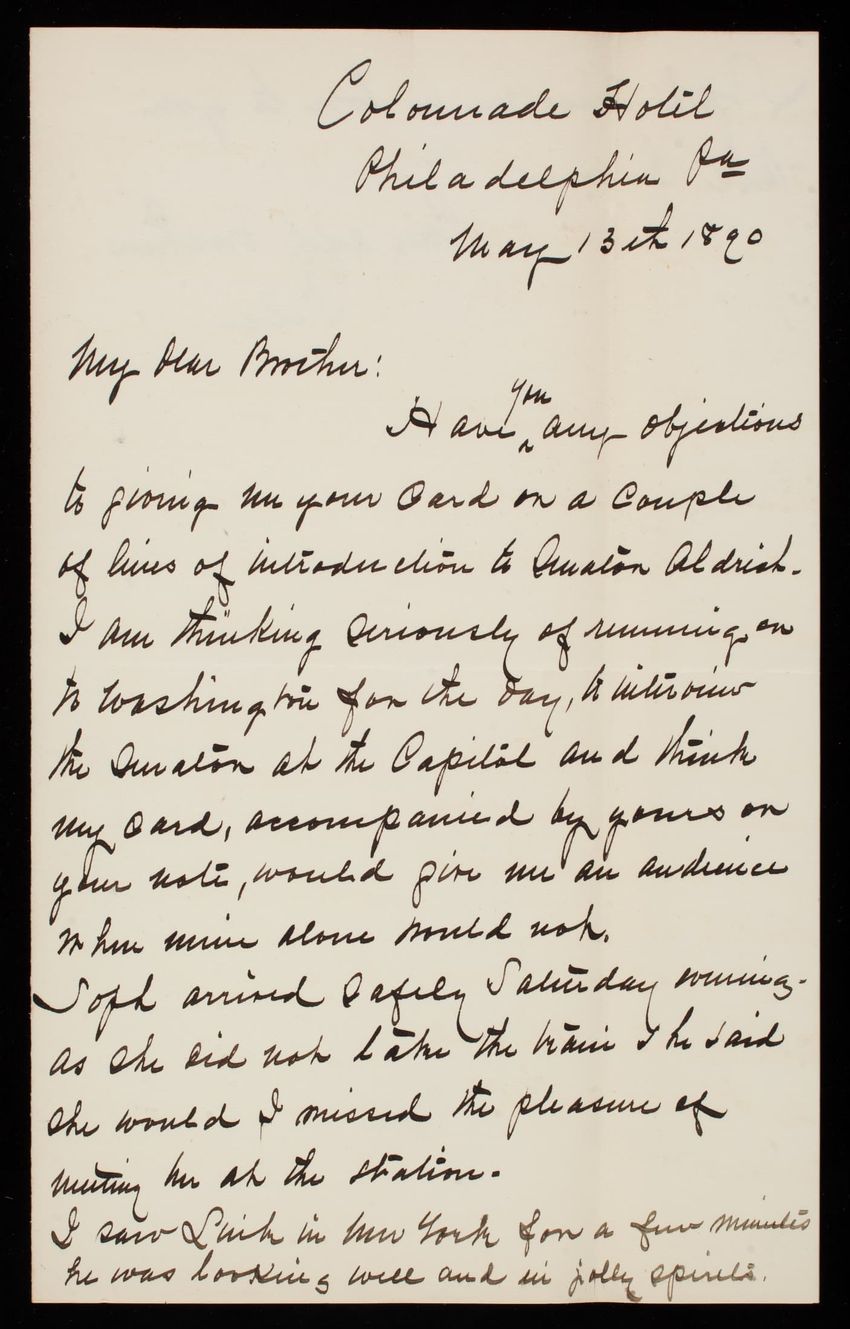 Colonnade Hotel
Philadelphia Pa
May 13th 1890
My Dear Brother:
Have you any objections
to giving me your card or a couple
of lines of introduction to Senator Aldrich.
I am thinking seriously of running on
to Washington for the day, to interview
the Senator at the Capitol and think
my card, accompanied by yours or
your note, would give me an audience
when mine alone would not.
Soph arrived safely Saturday evening.
as she did not take the train she said
she would I missed the pleasure of
meeting her at the station.
I saw Link in New York for a few minutes
he was looking well and in jolly spirits.